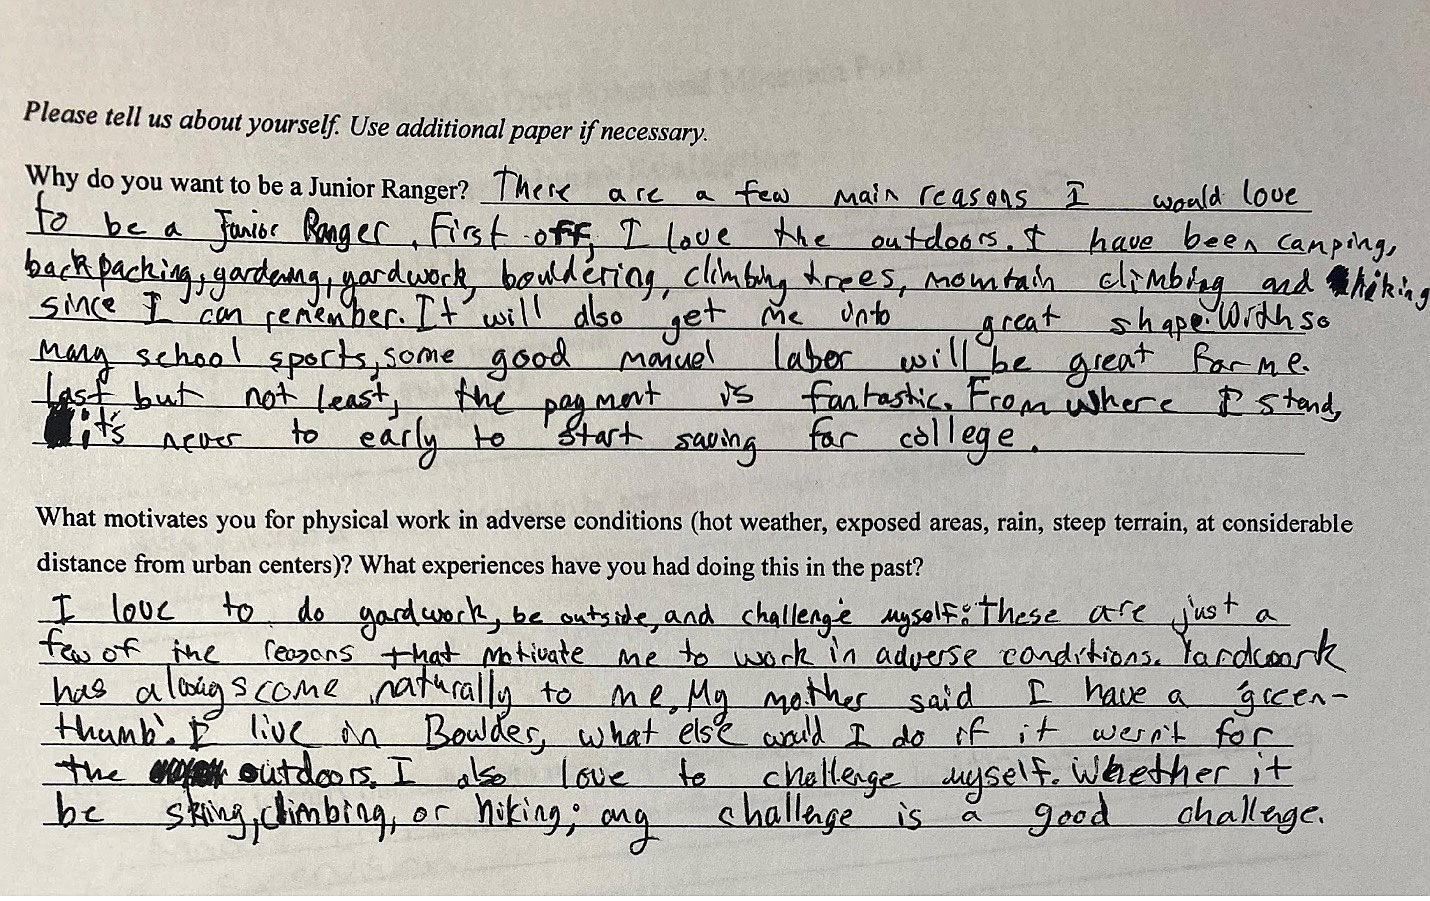 Please tell us about yourself. Use additional paper if necessary.
Why do you want to be a Junior Ranger? There are a few main reasons I would love
to be a Junior Ranger. First off, I love the outdoors. I have been camping,
backpacking, gardening, yardwork, bouldering, climbing trees, mountain climbing and hiking
since I can remember. It will also get me into great shape. With so
many school sports, some good manuel labor will be great for me.
Last but not least, the payment is fantastic. From where I stand,
it's never to early to start saving for college.
What motivates you for physical work in adverse conditions (hot weather, exposed areas, rain, steep terrain, at considerable
distance from urban centers)? What experiences have you had doing this in the past?
I love to do yardwork, be outside, and challenge myself. These are just a
few of the reasons that motivate me to work in adverse conditions. Yardwork
has always come naturally to me. My mother said I have a 'green-
thumb'. I live in Boulder, what else would I do if it wern't for
the outdoors. I also love to challenge myself. Whether it
be skiing, climbing, or hiking; any challenge is a good challenge.